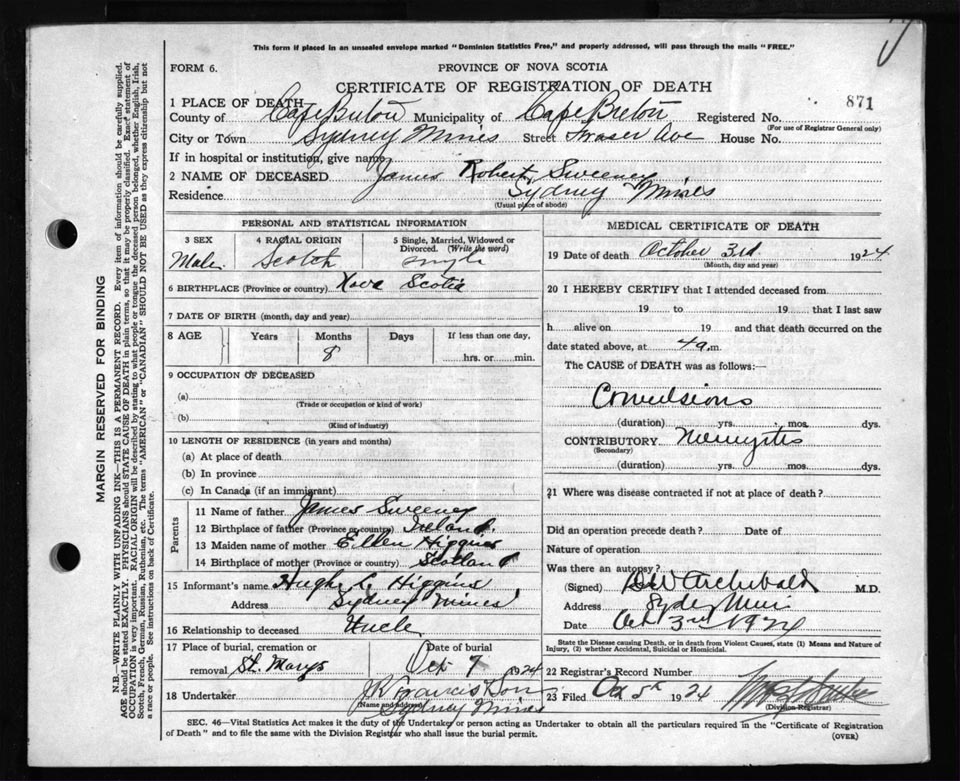 This form if placed in an unsealed envelope marked "Dominion Statistics Free," and properly addressed, will pass through the mails "FREE."
FORM 6.
PROVINCE OF NOVA SCOTIA
CERTIFICATE OF REGISTRATION OF DEATH
871
1 PLACE OF DEATH
County of Cape Breton Municipality of Cape Breton Registered No.
(For use of Registrar General only)
City or Town Sydney Mines Street Fraser Ave House No.
If in hospital or institution, give name
2 NAME OF DECEASED James Robert Sweeney
Residence Sydney Mines
(Usual place of abode)
PERSONAL AND STATISTICAL INFORMATION
3 SEX 4 RACIAL ORIGIN 5 Single, Married, Widowed or Divorced. (Write the word)
Male Scotch single
6 BIRTHPLACE (Province or country) Nova Scotia
7 DATE OF BIRTH (month, day and year)
8 AGE Years Months Days If less than one day,
8 hrs. or min.
9 OCCUPATION OF DECEASED
(a)
(Trade or occupation or kind of work)
(b)
(Kind of industry)
10 LENGTH OF RESIDENCE (in years and months)
(a) At place of death
(b) In province
(c) In Canada (if an immigrant)
Parents
11 Name of father James Sweeney
12 Birthplace of father (Province or country) Ireland.
13 Maiden name of mother Ellen Higgins
14 Birthplace of mother (Province or country) Scotland
15 Informant's name Hugh L. Higgins
Address Sydney Mines
16 Relationship to deceased Uncle
17 Place of burial, cremation or removal St. Marys
Date of burial Oct 7 1924
18 Undertaker J R Francis & Son
(Name and address) Sydney Mines
MEDICAL CERTIFICATE OF DEATH
19 Date of death October 3rd 1924
(Month, day and year)
20 I HEREBY CERTIFY that I attended deceased from
19 to 19 that I last saw
h alive on 19 and that death occurred on the
date stated above, at 4 a.m.
The CAUSE of DEATH was as follows:—
Convulsions
(duration) yrs. mos. dys.
CONTRIBUTORY
(Secondary)
(duration) yrs. mos. dys.
21 Where was disease contracted if not at place of death?
Did an operation precede death? Date of
Nature of operation
Was there an autopsy?
(Signed) B W Archibald M.D.
Address Sydney Mines
Date Oct 3rd 1924
State the Disease causing Death, or in death from Violent Causes, state (1) Means and Nature of Injury, (2) whether Accidental, Suicidal or Homicidal.
22 Registrar's Record Number
23 Filed Oct 5th 1924
(Division Registrar)
SEC. 46—Vital Statistics Act makes it the duty of the Undertaker or person acting as Undertaker to obtain all the particulars required in the "Certificate of Registration
of Death" and to file the same with the Division Registrar who shall issue the burial permit.
(OVER)
MARGIN RESERVED FOR BINDING
N.B.—WRITE PLAINLY WITH UNFADING INK—THIS IS A PERMANENT RECORD. Every item of information should be carefully supplied.
AGE should be stated EXACTLY. PHYSICIANS should STATE CAUSE OF DEATH in plain terms, so that it may be properly classified. Exact statement of
OCCUPATION is very important. RACIAL ORIGIN will be described by stating to what people or tongue the deceased person belonged, whether English, Irish,
Scotch, French, German, Russian, Ruthenian, etc. The terms "AMERICAN" or "CANADIAN" SHOULD NOT BE USED as they express citizenship but not
a race or people. See instructions on back of Certificate.